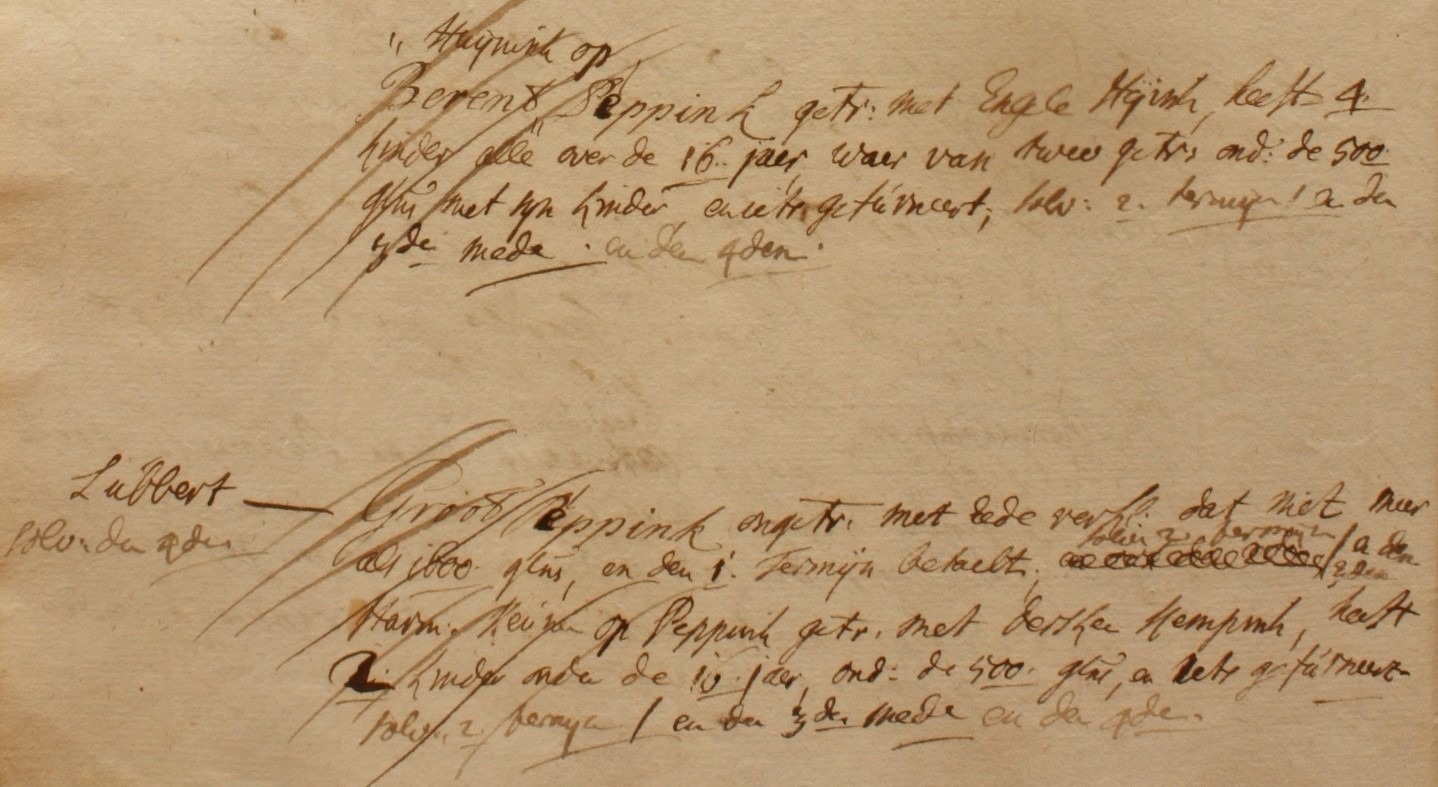 " Huijnink op
Berent, Peppink getr: met Engele Heijink, heeft 4.
kinder alle over de 16. jaer, waer van twee getr: ond: de 500
glns met syn kinder, en iets gefurneert; solv: 2. termyn / a den
3de mede. en den 4den.
Lubbert — Groot Peppink ongetr. met ede verkl. dat niet meer
solv: den 4den
solvit 2. termyn
als 1600 glns, en den 1. Termyn betaelt, / a den
3den
Harm. op Peppink getr. met Derske Kempink, heeft
2. kinder onder de 16. jaer, ond: de 500. glns, en iets gefurneert
solv. 2. termyn / en den 3den mede en den 4den.